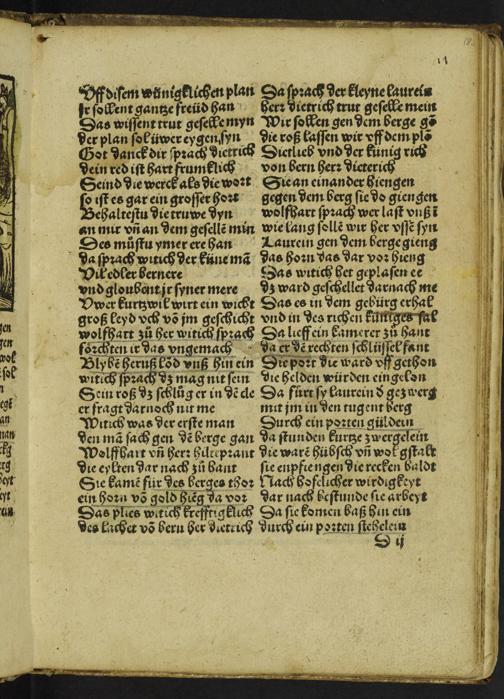 11
Vff disem wünigklichen plan
Ir sollent gantze freüd han
Das wissent trut geselle myn
der plan sol üwer eygen syn
Got danck dir sprach dietrich
dein red ist hart frumklich
Seind die werck als die wort
so ist es gar ein grosser hort
Behaltestu die truwe dyn
an mir vñ an dem gesellẽ min
Des müstu ymer ere han
da sprach witich der küne mã
Vil edler bernere
vnd gloubent jr syner mere
Vwer kurtzwil wirt ein wicht
groß leyd vch võ jm geschicht
wolfhart zů her witich sprach
förchten ir das vngemach
Blybẽ heruß lõd vnß hin ein
witich sprach dz mag nit sein
Sein roß dz schlůg er in dẽ cle
er fragt darnoch nit me
Witich was der erste man
den mã sach gen dẽ berge gan
Wolffhart vñ herr hilteprant
die eylten dar nach zů hant
Sie kamẽ für des berges thor
ein horn võ gold hieg da vor
Das plies witich krefftigklich
des lachet võ bern her dietrich
Da sprach der kleyne laurein
herr dietrich trut geselle mein
Wir sollen gen dem berge gõ
die roß lassen wir vff dem plõ
Dietlieb vnd der künig rich
von bern herr dieterich
Sie an einander hiengen
gegen dem berg sie do giengen
wolfhart sprach wer last vnß ĩ
wie lang sollẽ wir her vssẽ syn
Laurein gen dem berge gieng
das horn das dar vor hieng
Das witich het geplasen ee
dz ward geschellet darnach me
Das es in dem gebürg erhal
vnd in des richen küniges sal
Da lieff ein kamerer zů hant
da er dẽ rechten schlüssel fant
Die port die ward vff gethon
die helden würden eingelon
Da fürt sy laurein ð gezwerg
mit jm in den tugent berg
Durch ein porten güldein
da stunden kurtze zwergelein
die warẽ hübsch vñ wol gstalt
sie enpfiengen die recken baldt
Nach hofelicher wirdigkeyt
dar nach bestunde sie arbeyt
Da sie komen baß hin ein
durch ein porten stehelein
D ij